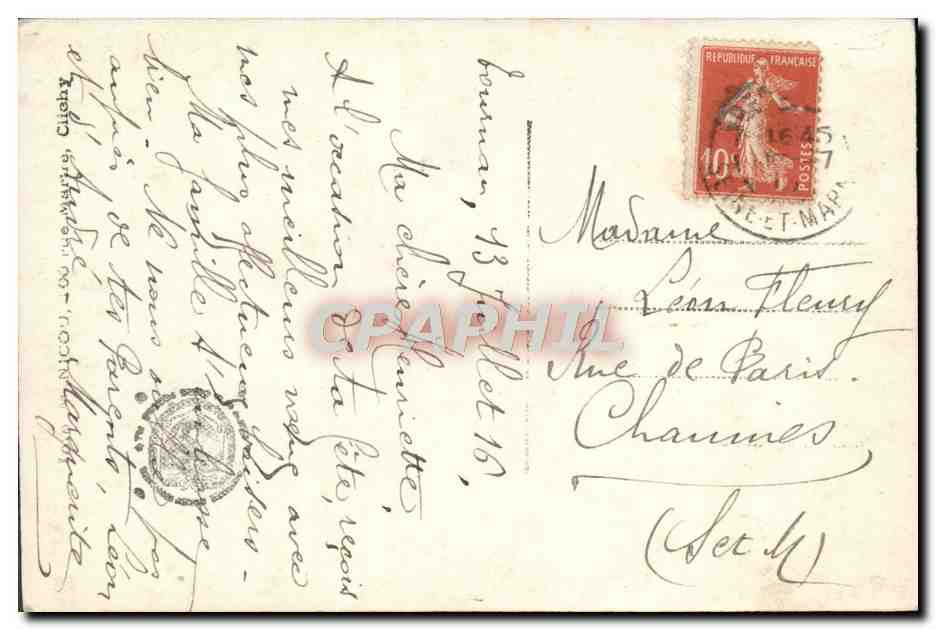 Tournan, 13 Juillet 16,
Ma chère Henriette,
A l'occasion de ta fête, reçois
mes meilleurs vœux avec
nos plus affectueux baisers -
Ma famille t'
bien - Ne nous
auprès de tes Parents, Léon
et d'Andrée
Marguerite
Madame
Léon Fleury
Rue de Paris.
Chaumes
(Set M)
REPUBLIQUE FRANÇAISE
10c
POSTES
16 45
NE-ET-MAR
CPAPHIL